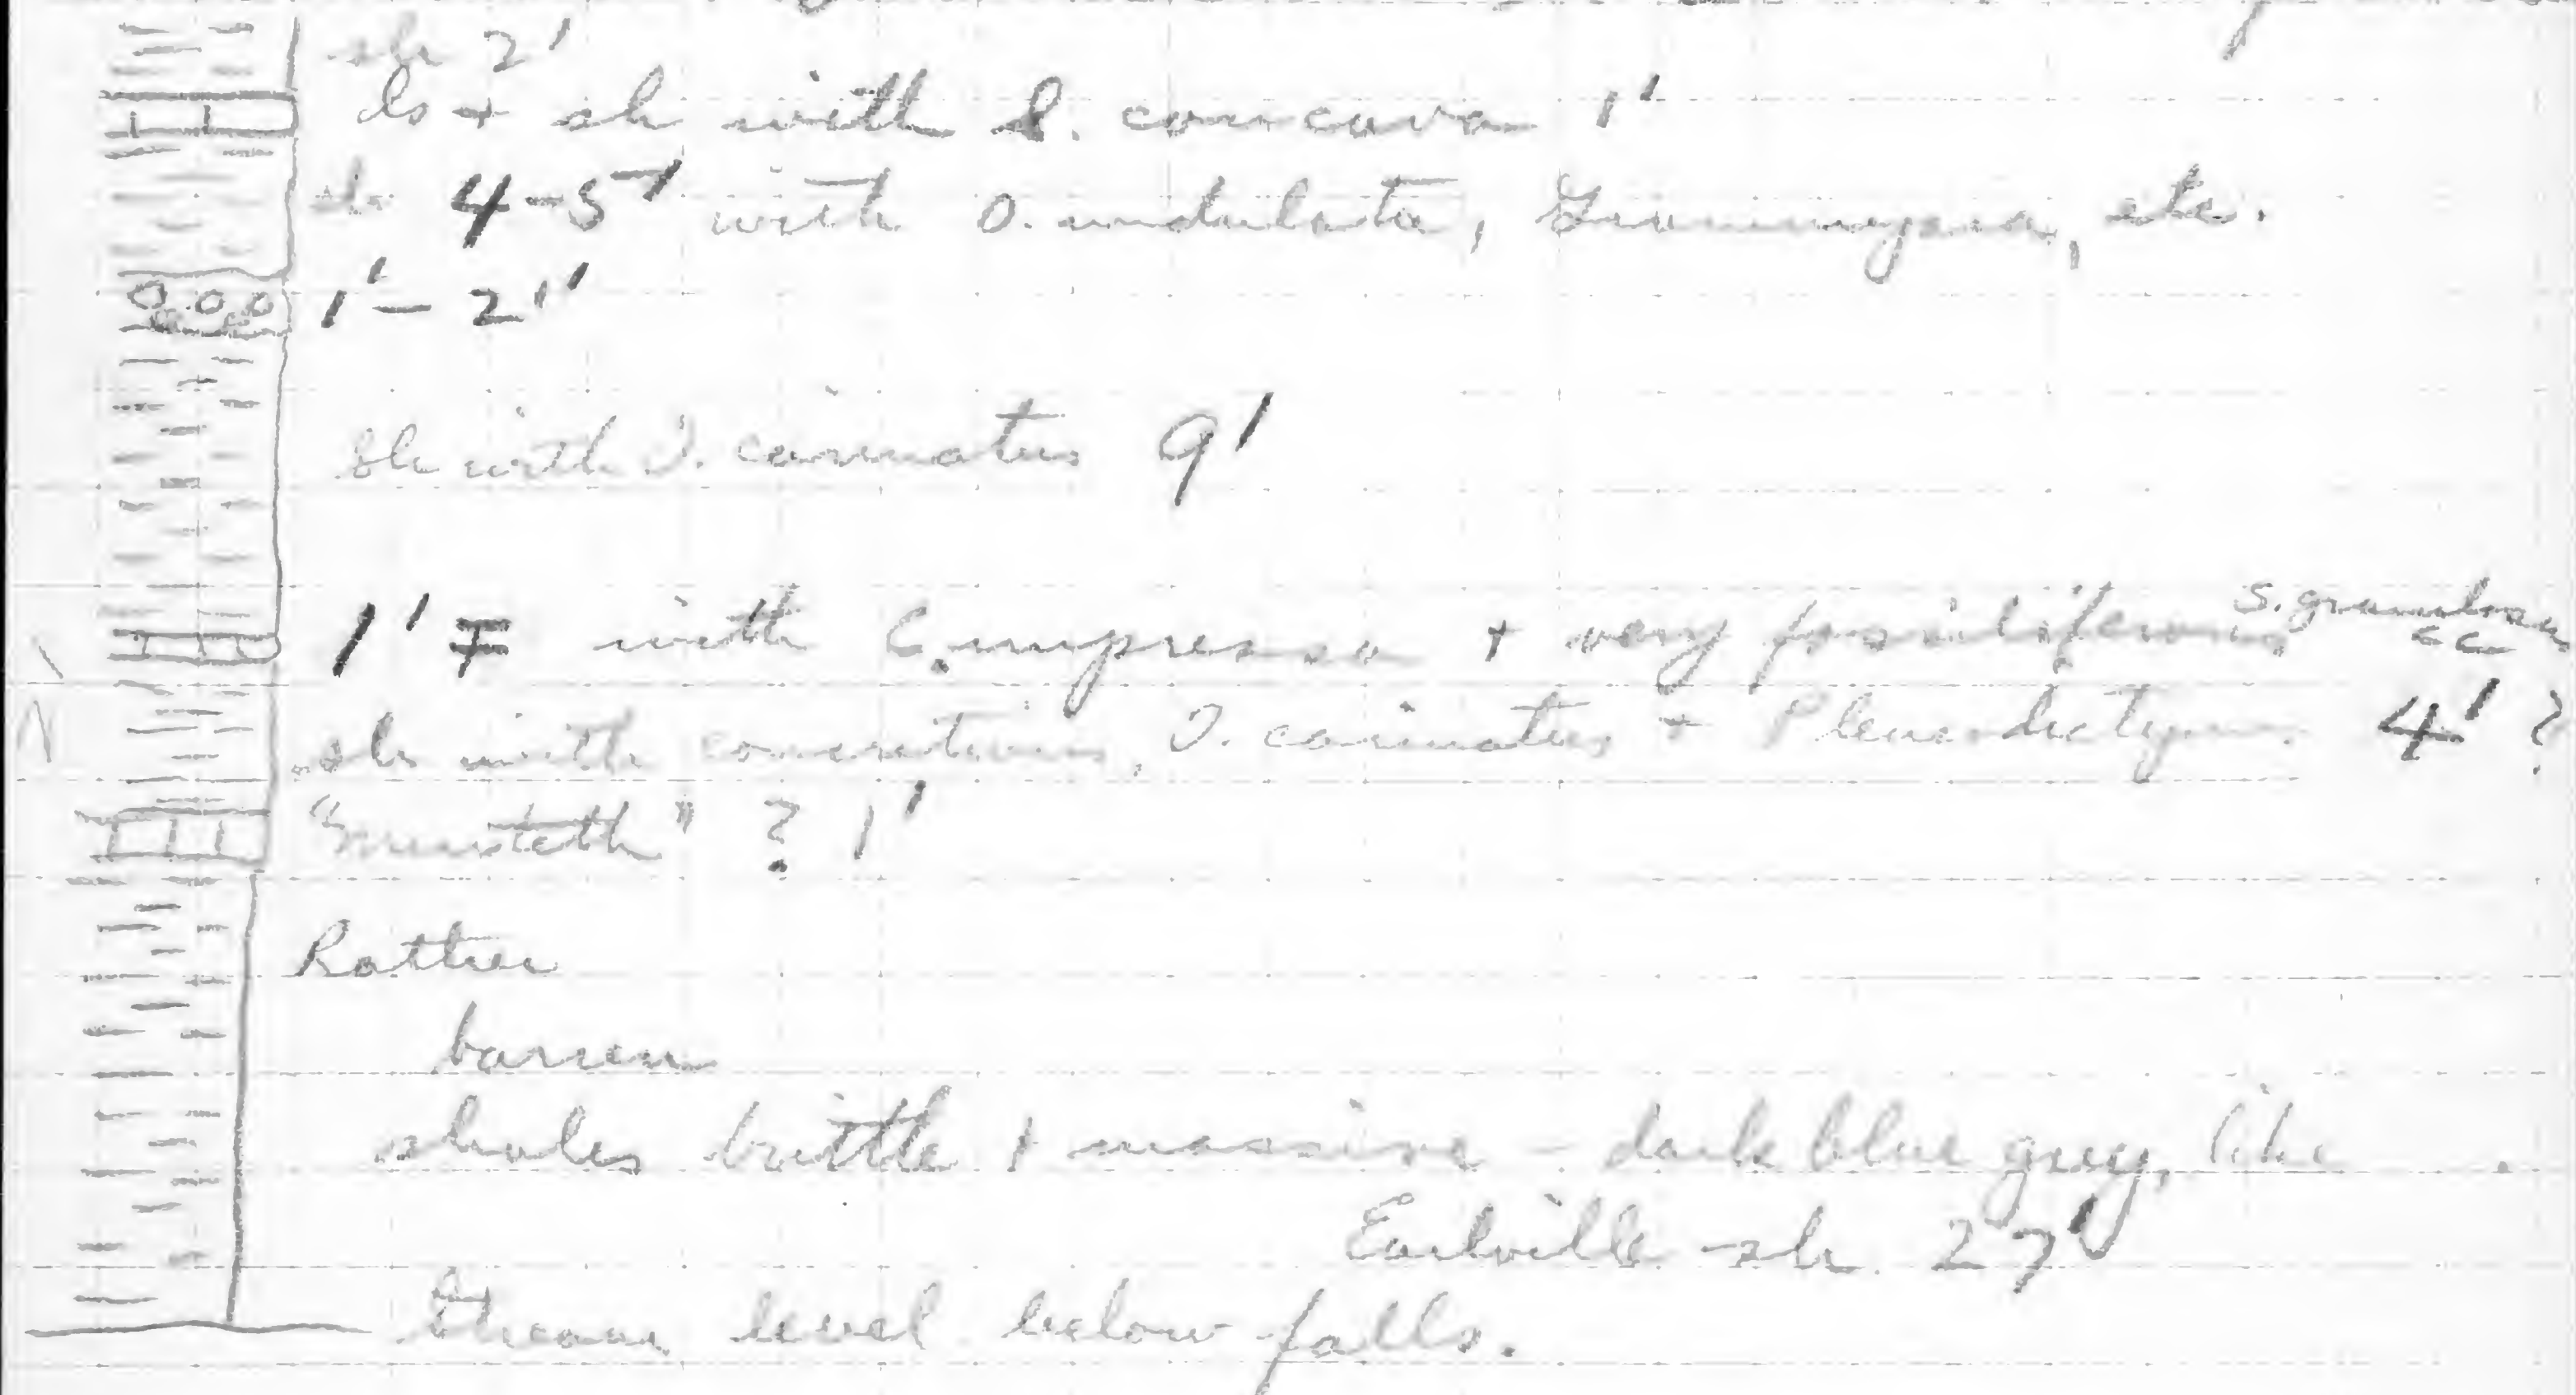 sh 2'
ls + sh with S. concava 1'
sh 4-5' with O. undulata, Grammysia, etc.
1'- 2''
Sh with T. carinatus 9'
S. granulosus
1' ∓ with C. impressa + very fossiliferous cc
sh with concretions, T. carinatus + Pleurodictyum 4' ?
" ? 1'
Rather
barren
shales brittle + massive - dark blue grey, like
Earlville sh. 27'
Stream level below falls.